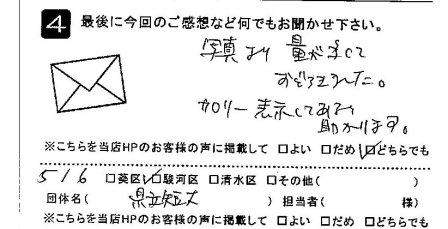 4 最後に今回のご感想など何でもお聞かせ下さい。
写真より 量が多くて
おどろきました。
カロリー表示してあるのが
助かります。
※こちらを当店HPのお客様の声に掲載して □よい □だめ ☑どちらでも
5/6 □葵区 ☑駿河区 □清水区 □その他( )
団体名( 県立短大 ) 担当者( 様)
※こちらを当店HPのお客様の声に掲載して □よい □だめ □どちらでも